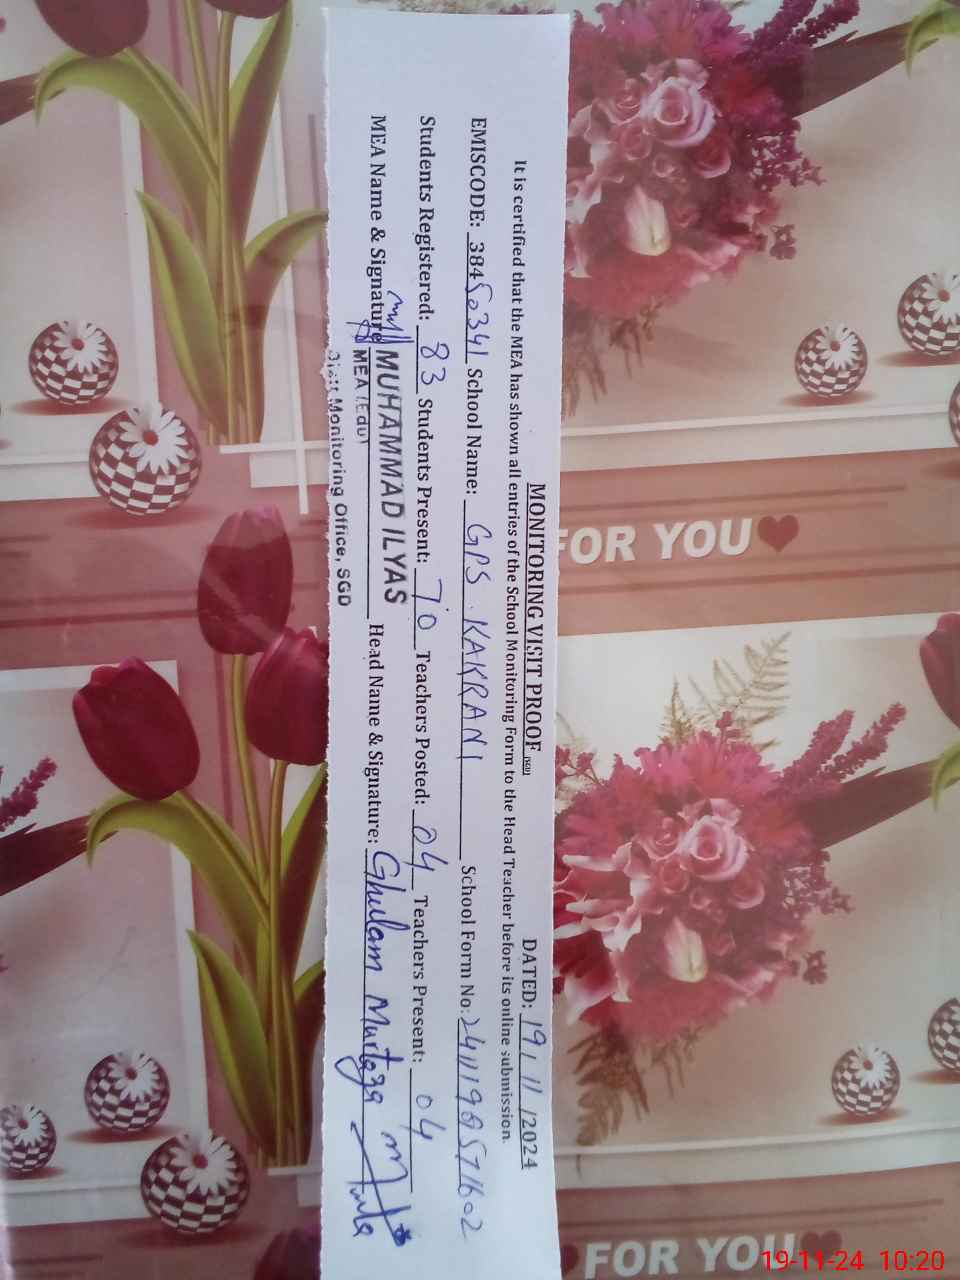 MONITORING VISIT PROOF (SGD) DATED: 19/11/2024
It is certified that the MEA has shown all entries of the School Monitoring Form to the Head Teacher before its online submission.
EMISCODE: 38450341 School Name: GPS KAKRANI School Form No:
Students Registered: 83 Students Present: 70 Teachers Posted: 04 Teachers Present: 04
MEA Name & Signature MUHAMMAD ILYAS Head Name & Signature: Ghulam Murtaza
MEA (Edu)
Distt Monitoring Office, SGD
FOR YOU
FOR YOU
19-11-24 10:20